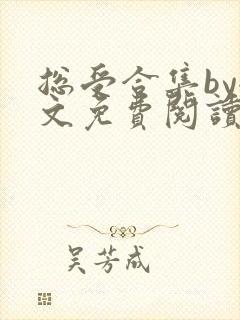 总受合集by
文免费閱讀
吴芳成